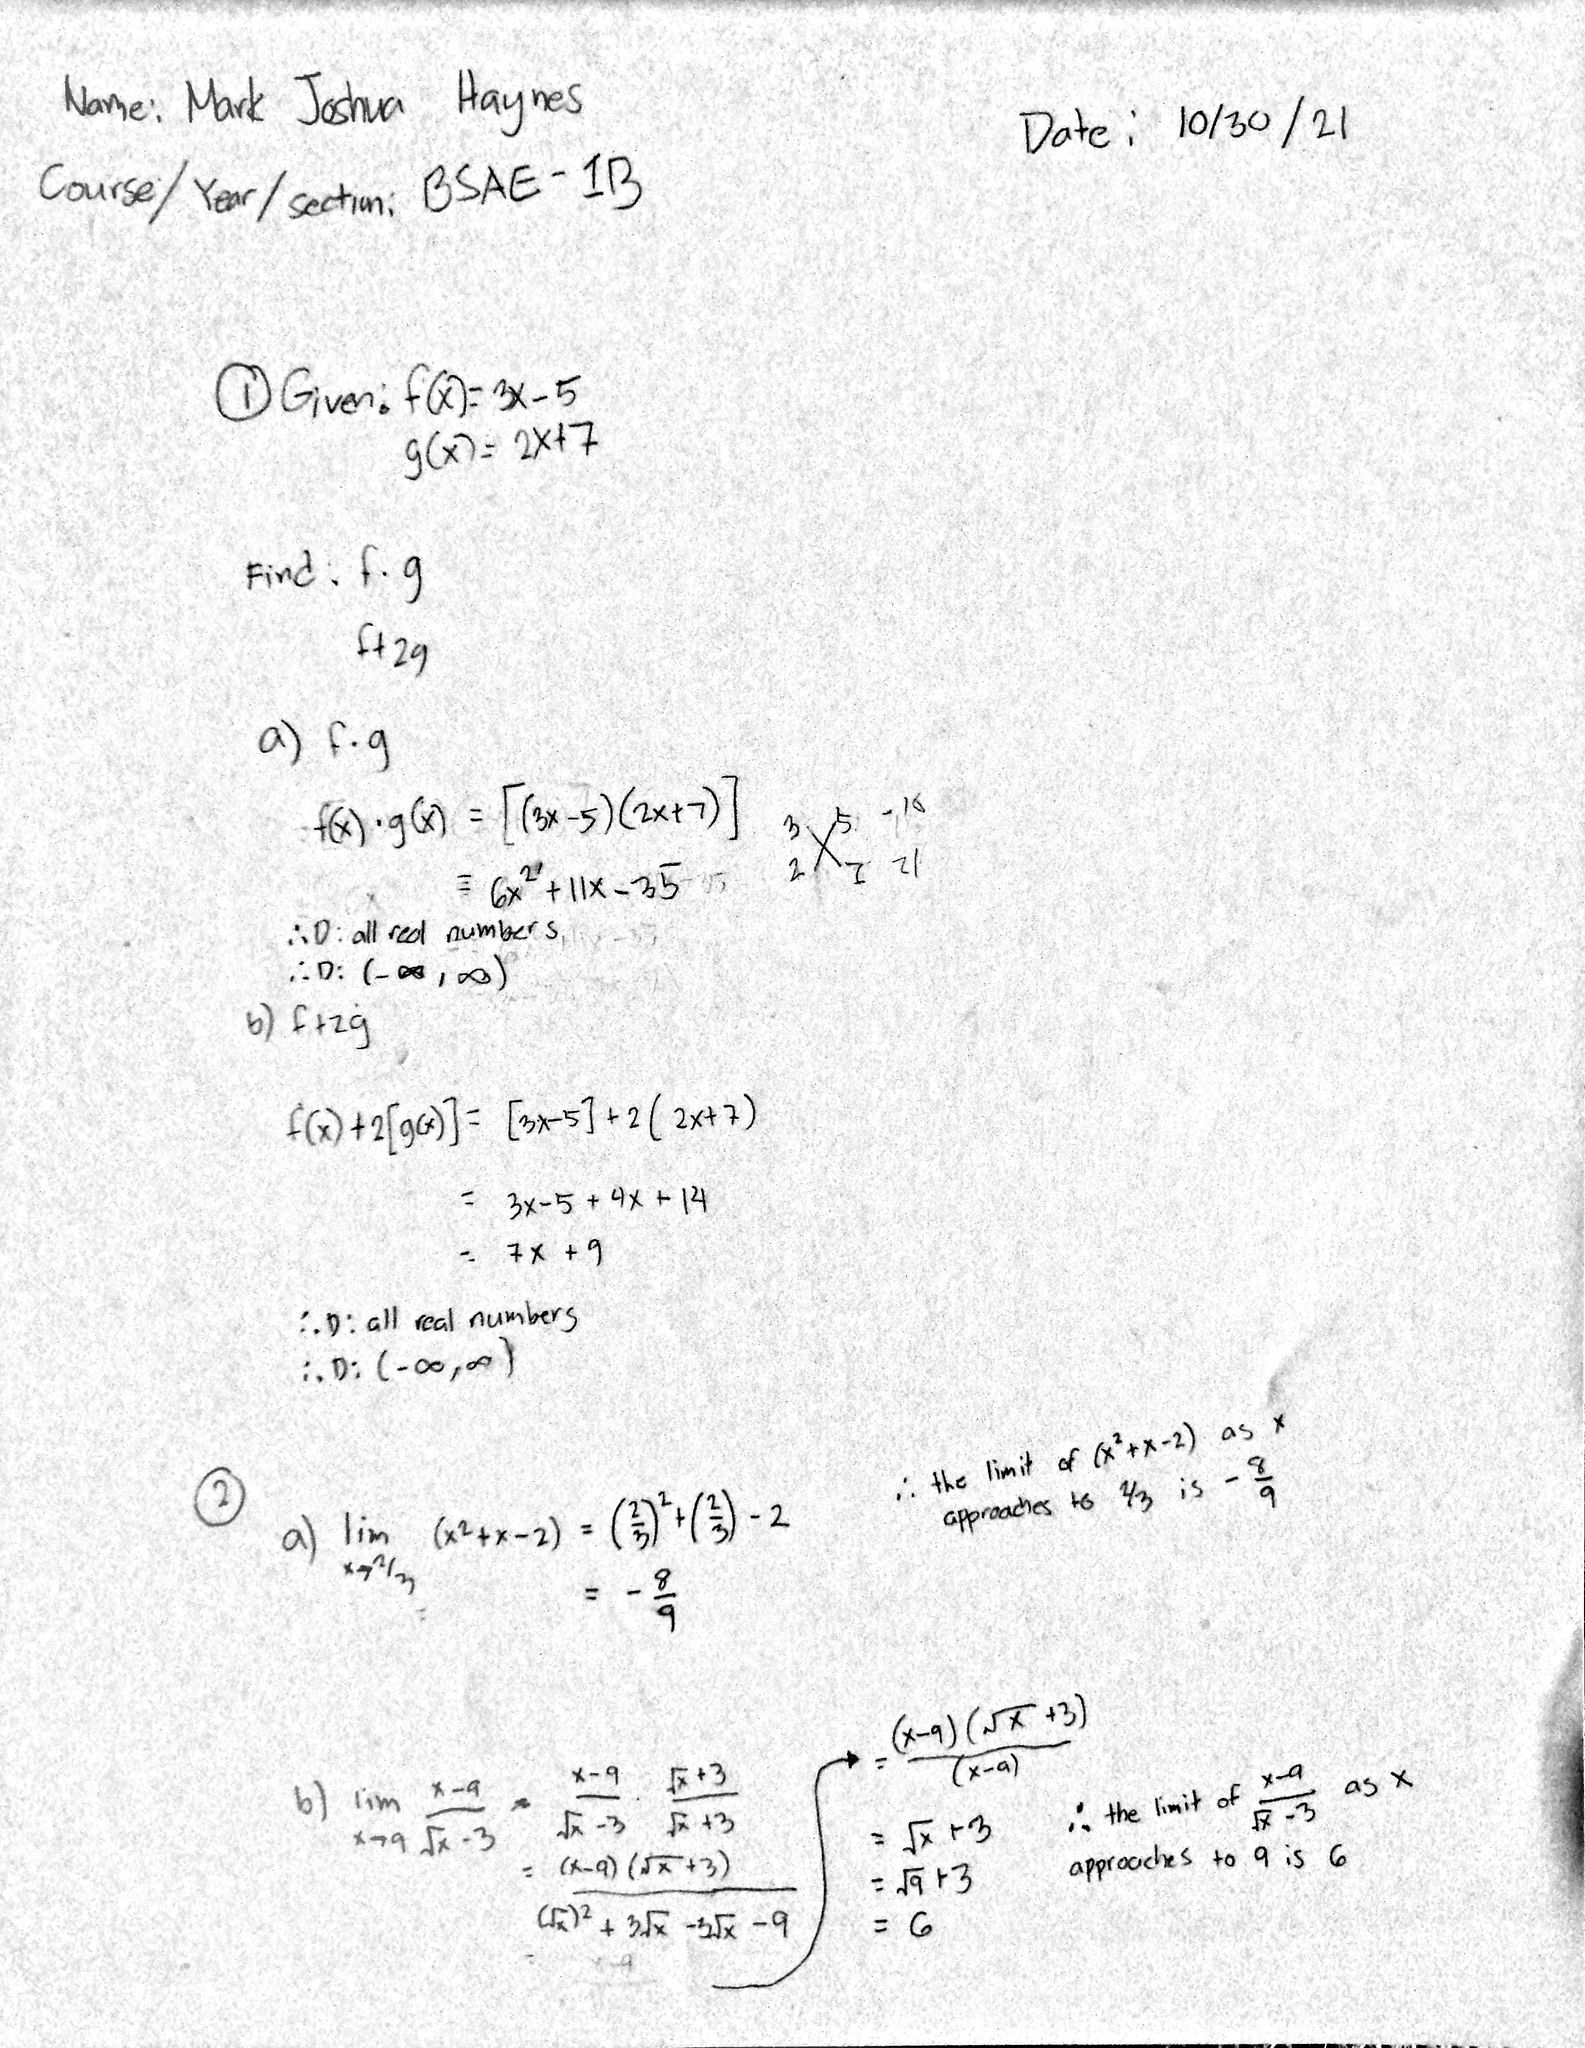 Name: Mark Joshua Haynes
Date: 10/30/21
Course/Year/section: BSAE-1B
① Given: f(x)= 3x-5
g(x)= 2x+7
Find: f·g
f+2g
a) f·g
f(x)·g(x) = [(3x-5)(2x+7)]
3 5
2 7 21
= 6x²+11x-35
∴D: all real numbers
∴D: (-∞, ∞)
b) f+2g
f(x)+2[g(x)]= [3x-5]+2(2x+7)
= 3x-5+4x+14
= 7x+9
∴D: all real numbers
∴D: (-∞,∞)
②
a) lim x→2/3 (x²+x-2) = (2/3)²+(2/3)-2
= -8/9
∴ the limit of (x²+x-2) as x
approaches to 2/3 is -8/9
b) lim x→9 x-9/√x-3 = x-9/√x-3 · √x+3/√x+3
= (x-9)(√x+3)/(√x)²+3√x-3√x-9
= (x-9)(√x+3)/(x-9)
= √x+3
= √9+3
= 6
∴ the limit of x-9/√x-3 as x
approaches to 9 is 6